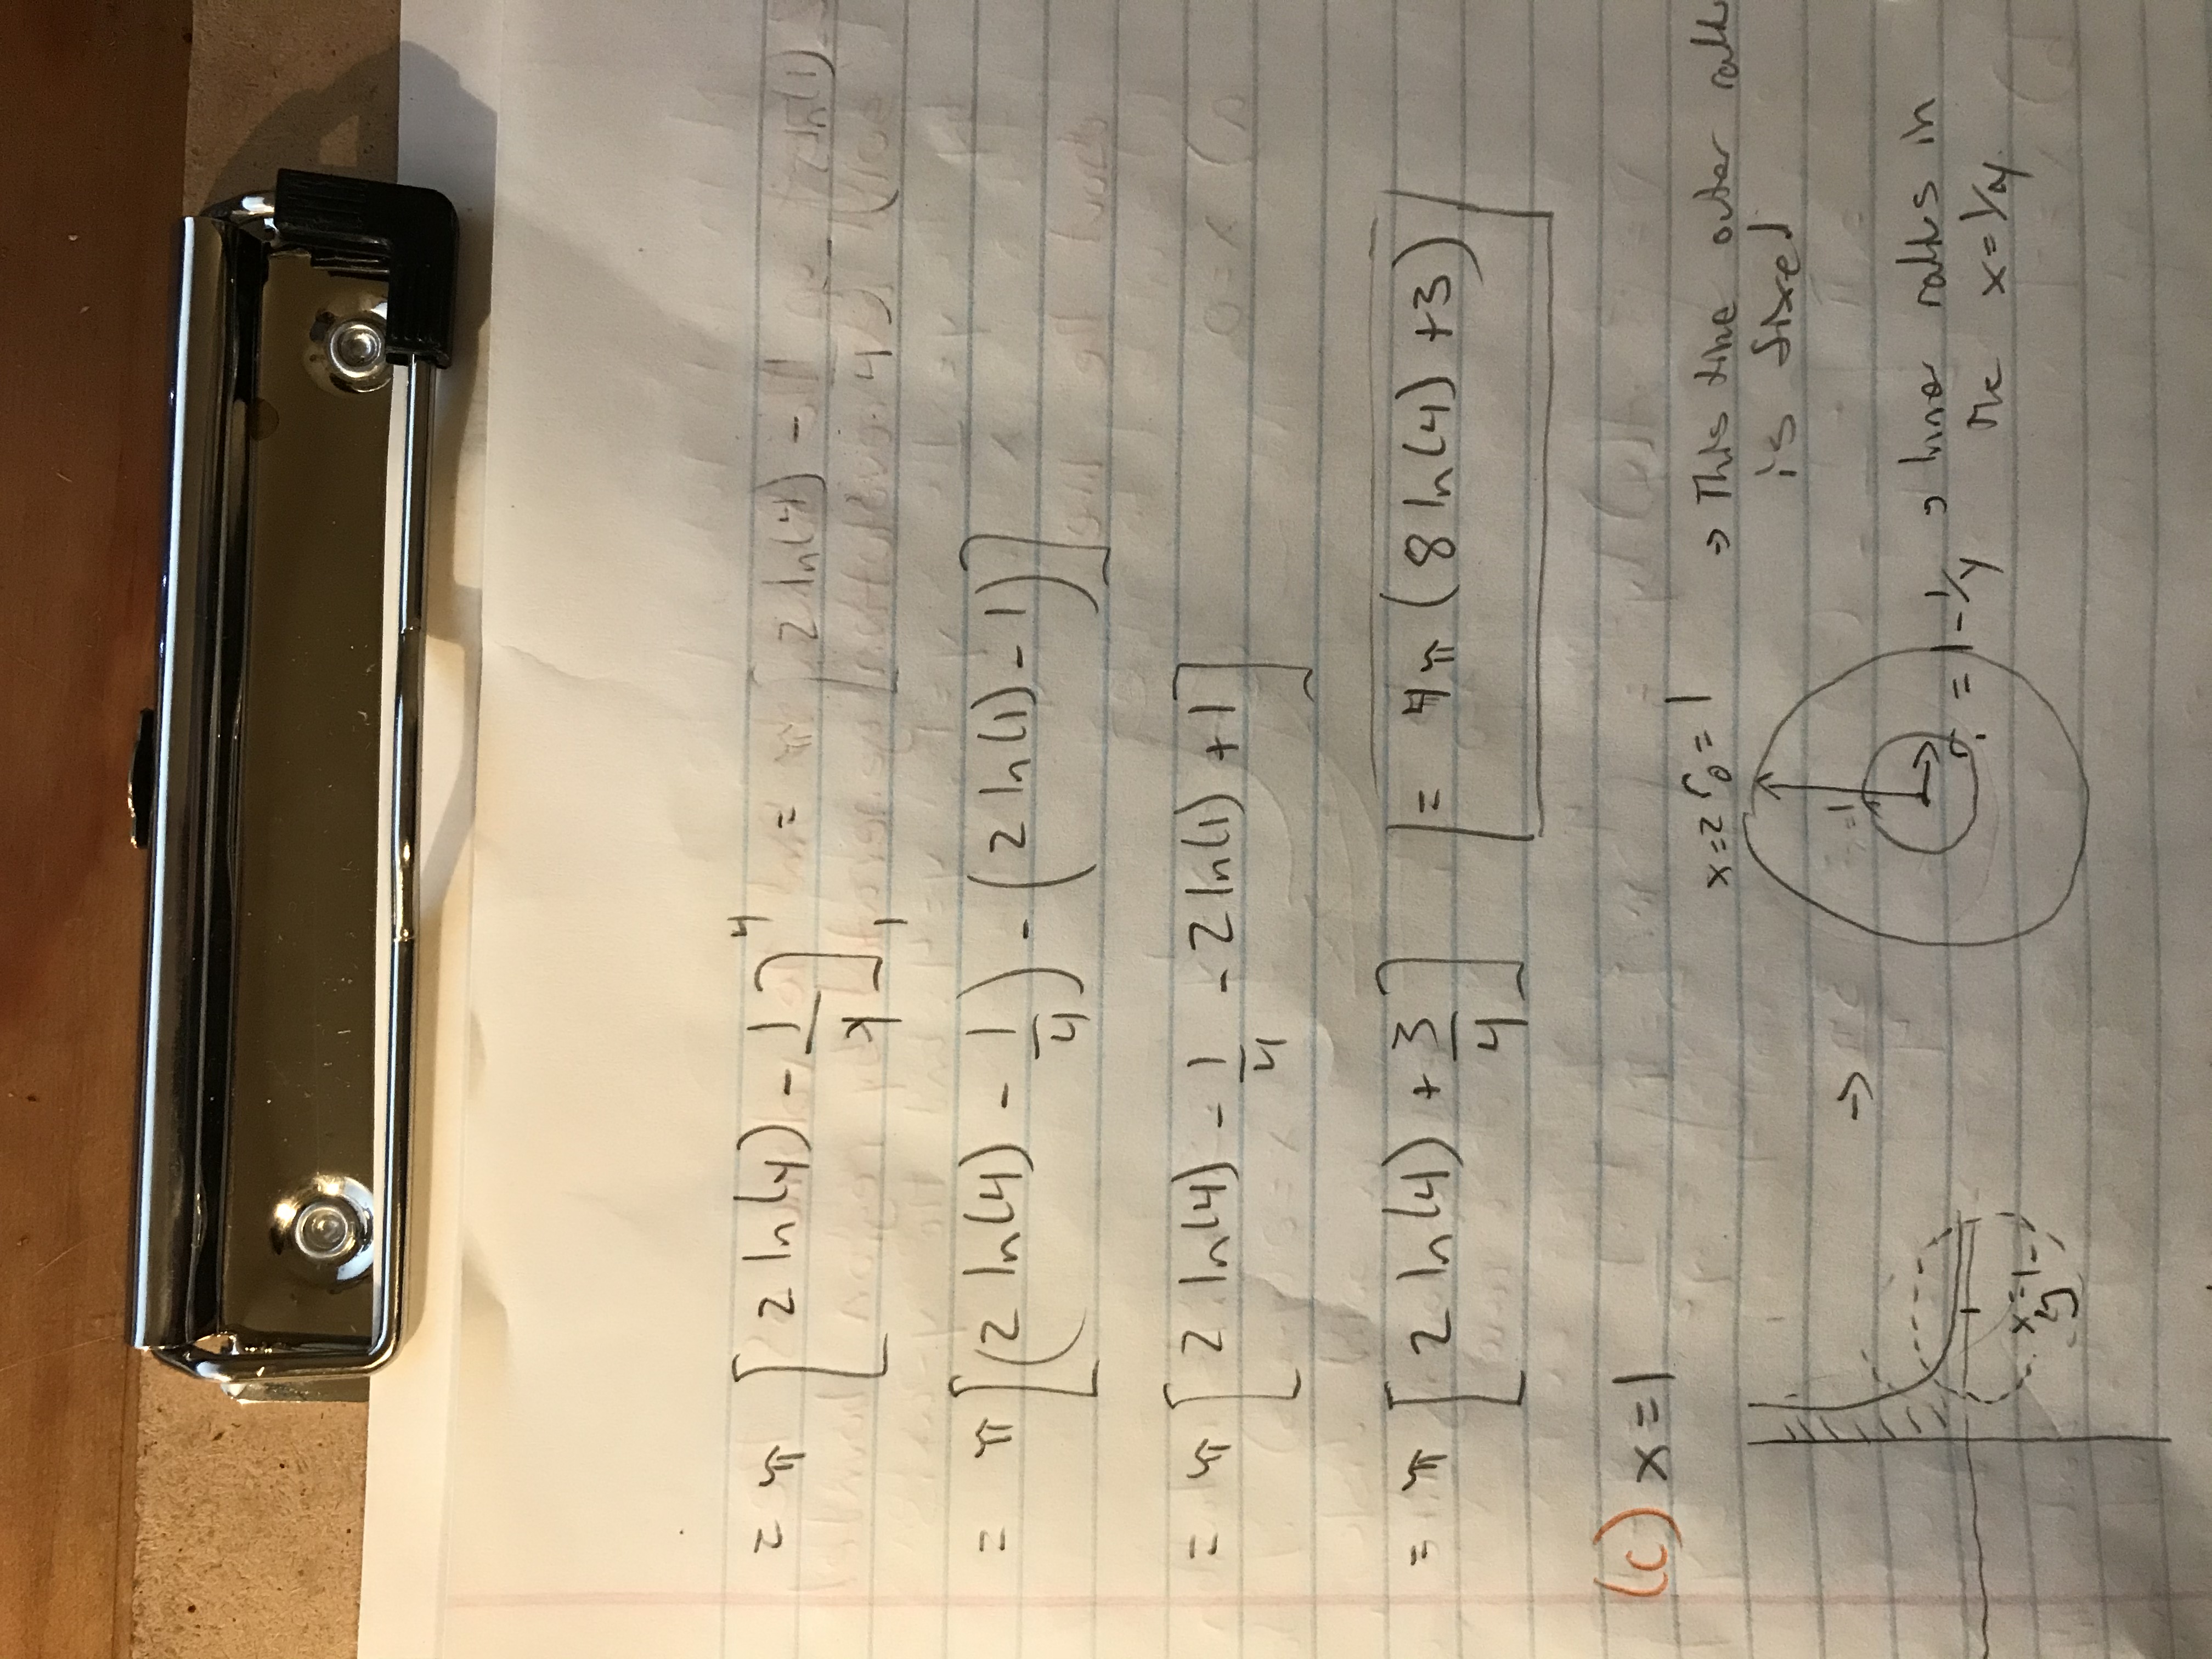 = π [2 ln(y) - 1/y]₁⁴ = π [2 ln(4) - 1/4 -
= π [(2 ln(4) - 1/4) - (2 ln(1) - 1)]
= π [2 ln(4) - 1/4 - 2 ln(1) + 1]
= π [2 ln(4) + 3/4] = 4π (8 ln(4) + 3)
(c) x=1
x=2 r₀ = 1 → This time outer
is fixed
→
=1
rᵢ = 1 - 1/y → Inner radius in
the x=1/y
x=1